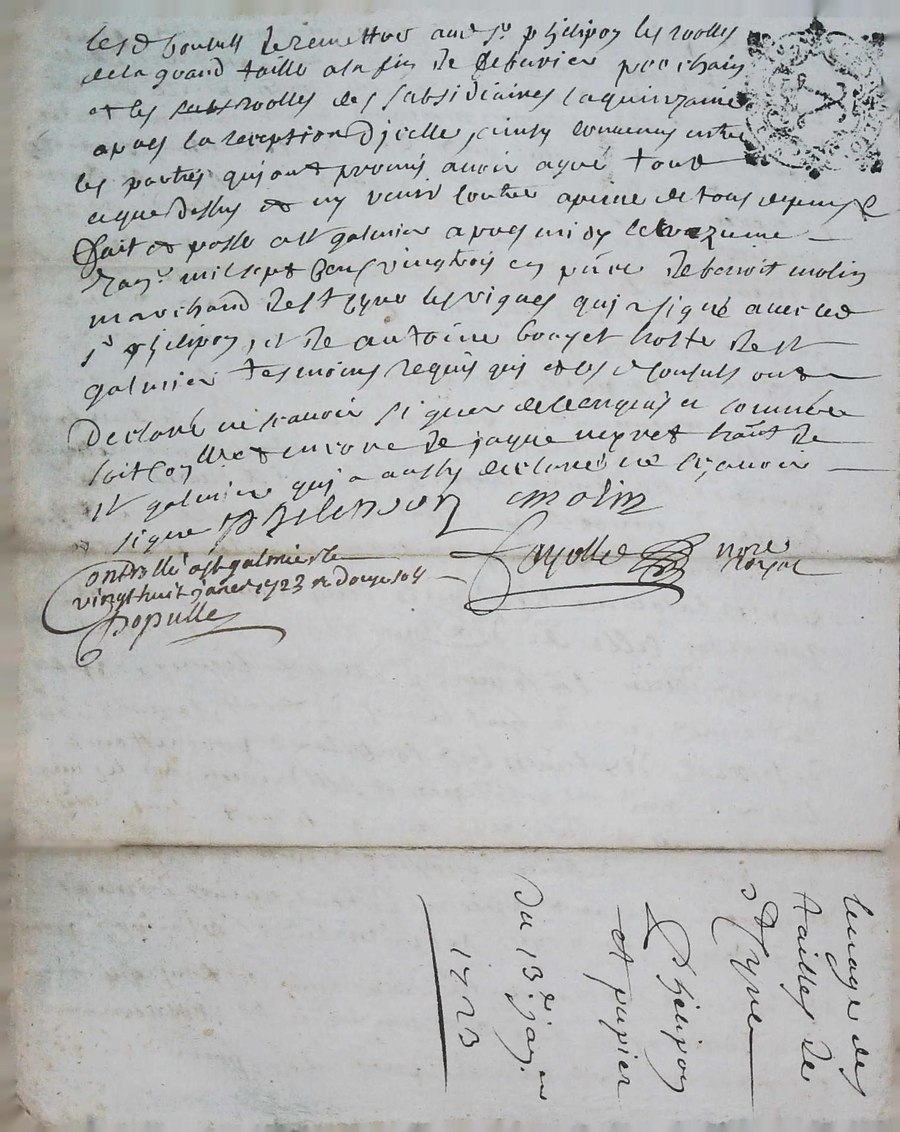 lesd Consuls de remettre aud sr philipon les roolles
de la grand taille a la fin de febvrier prochain
et les roolles des subsidiaires la quinzaine
apres la reception dicelle, ainsy convenus entre
les parties qui ont promis avoir agreé tout
ceque dessus et ny venir contre a peine de tous depens
fait et passé a st galmier apres midy le trezieme
janr mil sept cens vingtrois en pnce de benoit molin
marchand de st Cyr les vignes qui a signé avec led
sr philipon, et de antoine bouyet hoste de st
galmier tesmoins requis qui et lesd Consuls ont
declaré ne scavoir signer de ce enquis et sommés
soit et encore de jaque neyret hant de
st galmier qui a aussy declaré ne scavoir
signer Philipon Molin
Fayolle nore royal
Controllé a st galmier le
vingt huit janer 1723 R douze sols
Populle
levage des
tailles de
st Cyre
Phelipon
et pupier
Du 13e janer
1723